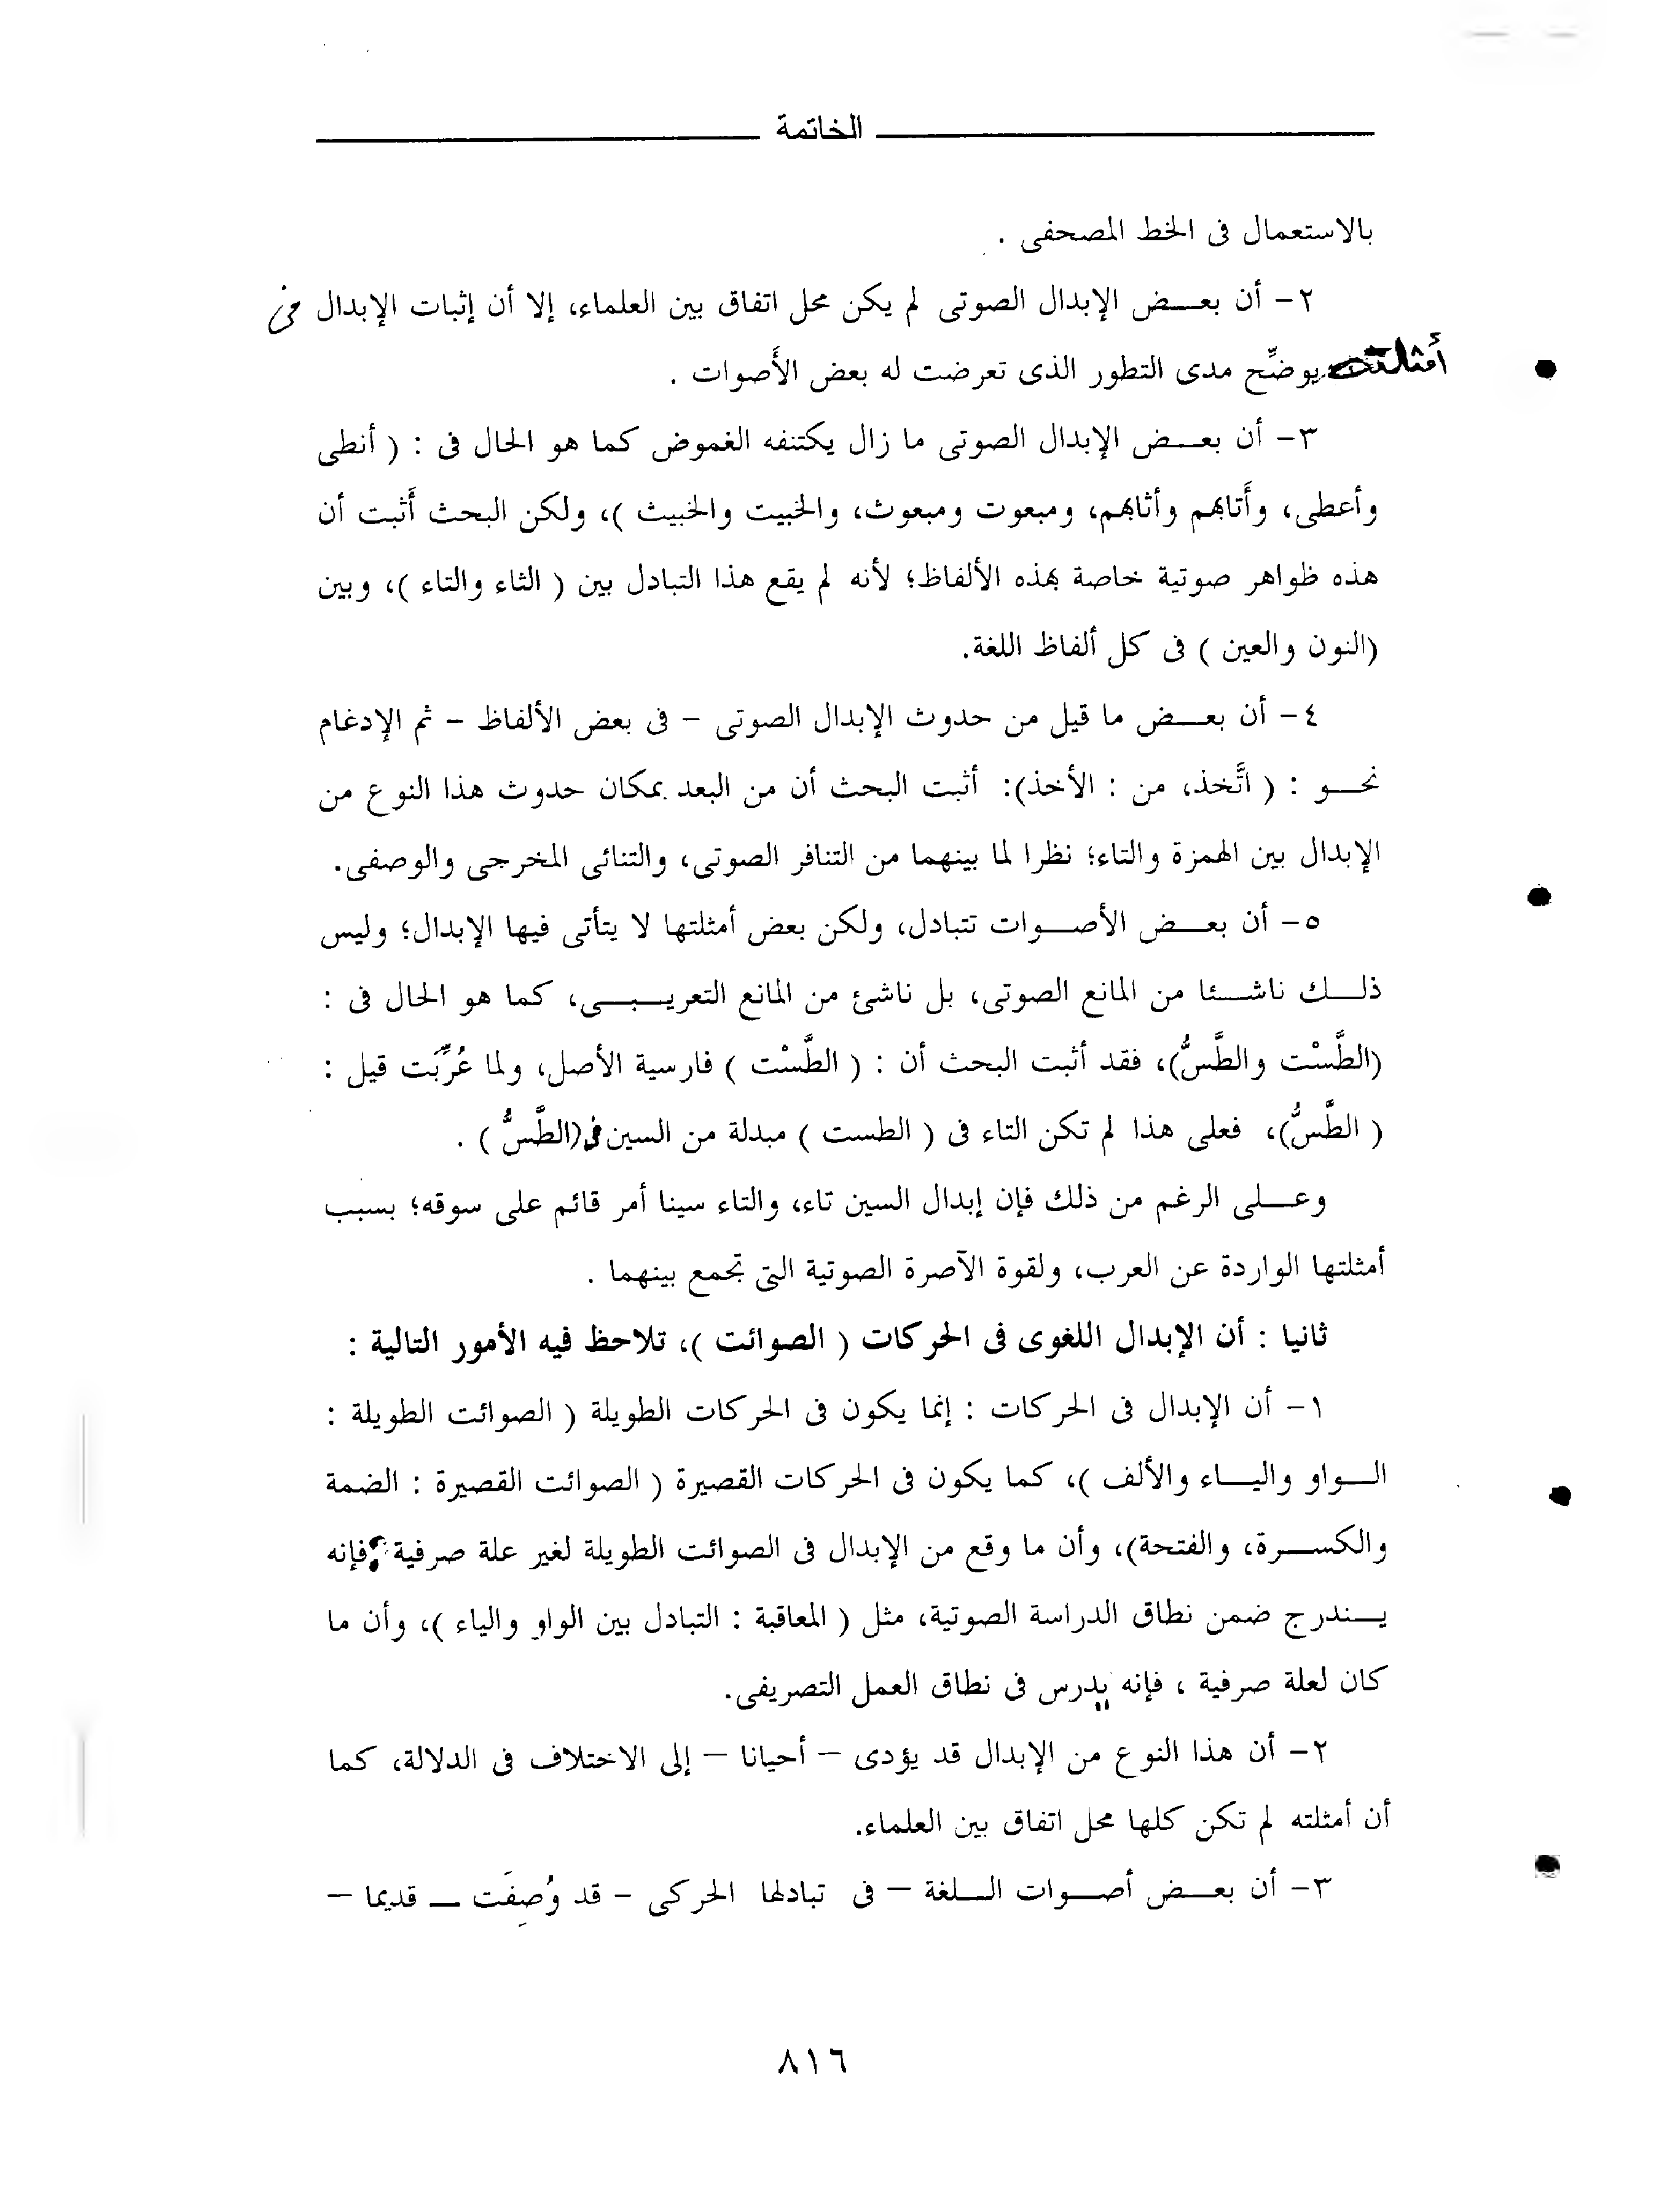 الخاتمة
بالاستعمال فى الخط المصحفى .
٢- أن بعض الإبدال الصوتى لم يكن محل اتفاق بين العلماء، إلا أن إثبات الإبدال فى
أمثلته يوضِّح مدى التطور الذى تعرضت له بعض الأصوات .
٣- أن بعض الإبدال الصوتى ما زال يكتنفه الغموض كما هو الحال فى : ( أنطى
وأعطى، وأَتابهم وأثابهم، ومبعوت ومبعوث، والخبيت والخبيث )، ولكن البحث أَثبت أن
هذه ظواهر صوتية خاصة بهذه الألفاظ؛ لأنه لم يقع هذا التبادل بين ( الثاء والتاء )، وبين
(النون والعين ) فى كل ألفاظ اللغة.
٤- أن بعض ما قيل من حدوث الإبدال الصوتى – فى بعض الألفاظ – ثم الإدغام
نحو : ( اتَّخذ، من : الأخذ): أثبت البحث أن من البعد بمكان حدوث هذا النوع من
الإبدال بين الهمزة والتاء؛ نظرا لما بينهما من التنافر الصوتى، والتنائى المخرجى والوصفى.
٥- أن بعض الأصوات تتبادل، ولكن بعض أمثلتها لا يتأتى فيها الإبدال؛ وليس
ذلك ناشئا من المانع الصوتى، بل ناشئ من المانع التعريبى، كما هو الحال فى :
(الطَّسْت والطَّسُّ)، فقد أثبت البحث أن : ( الطَّسْت ) فارسية الأصل، ولما عُرِّبَت قيل :
( الطَّسُّ)، فعلى هذا لم تكن التاء فى ( الطست ) مبدلة من السين فى (الطَّسُّ ) .
وعلى الرغم من ذلك فإن إبدال السين تاء، والتاء سينا أمر قائم على سوقه؛ بسبب
أمثلتها الواردة عن العرب، ولقوة الآصرة الصوتية التى تجمع بينهما .
ثانيا : أن الإبدال اللغوى فى الحركات ( الصوائت )، تلاحظ فيه الأمور التالية :
١- أن الإبدال فى الحركات : إنما يكون فى الحركات الطويلة ( الصوائت الطويلة :
الواو والياء والألف )، كما يكون فى الحركات القصيرة ( الصوائت القصيرة : الضمة
والكسرة، والفتحة)، وأن ما وقع من الإبدال فى الصوائت الطويلة لغير علة صرفية فإنه
يندرج ضمن نطاق الدراسة الصوتية، مثل ( المعاقبة : التبادل بين الواو والياء )، وأن ما
كان لعلة صرفية ، فإنه يدرس فى نطاق العمل التصريفى.
٢- أن هذا النوع من الإبدال قد يؤدى – أحيانا – إلى الاختلاف فى الدلالة، كما
أن أمثلته لم تكن كلها محل اتفاق بين العلماء.
٣- أن بعض أصوات اللغة – فى تبادلها الحركى – قد وُصِفَت – قديما –
٨١٦